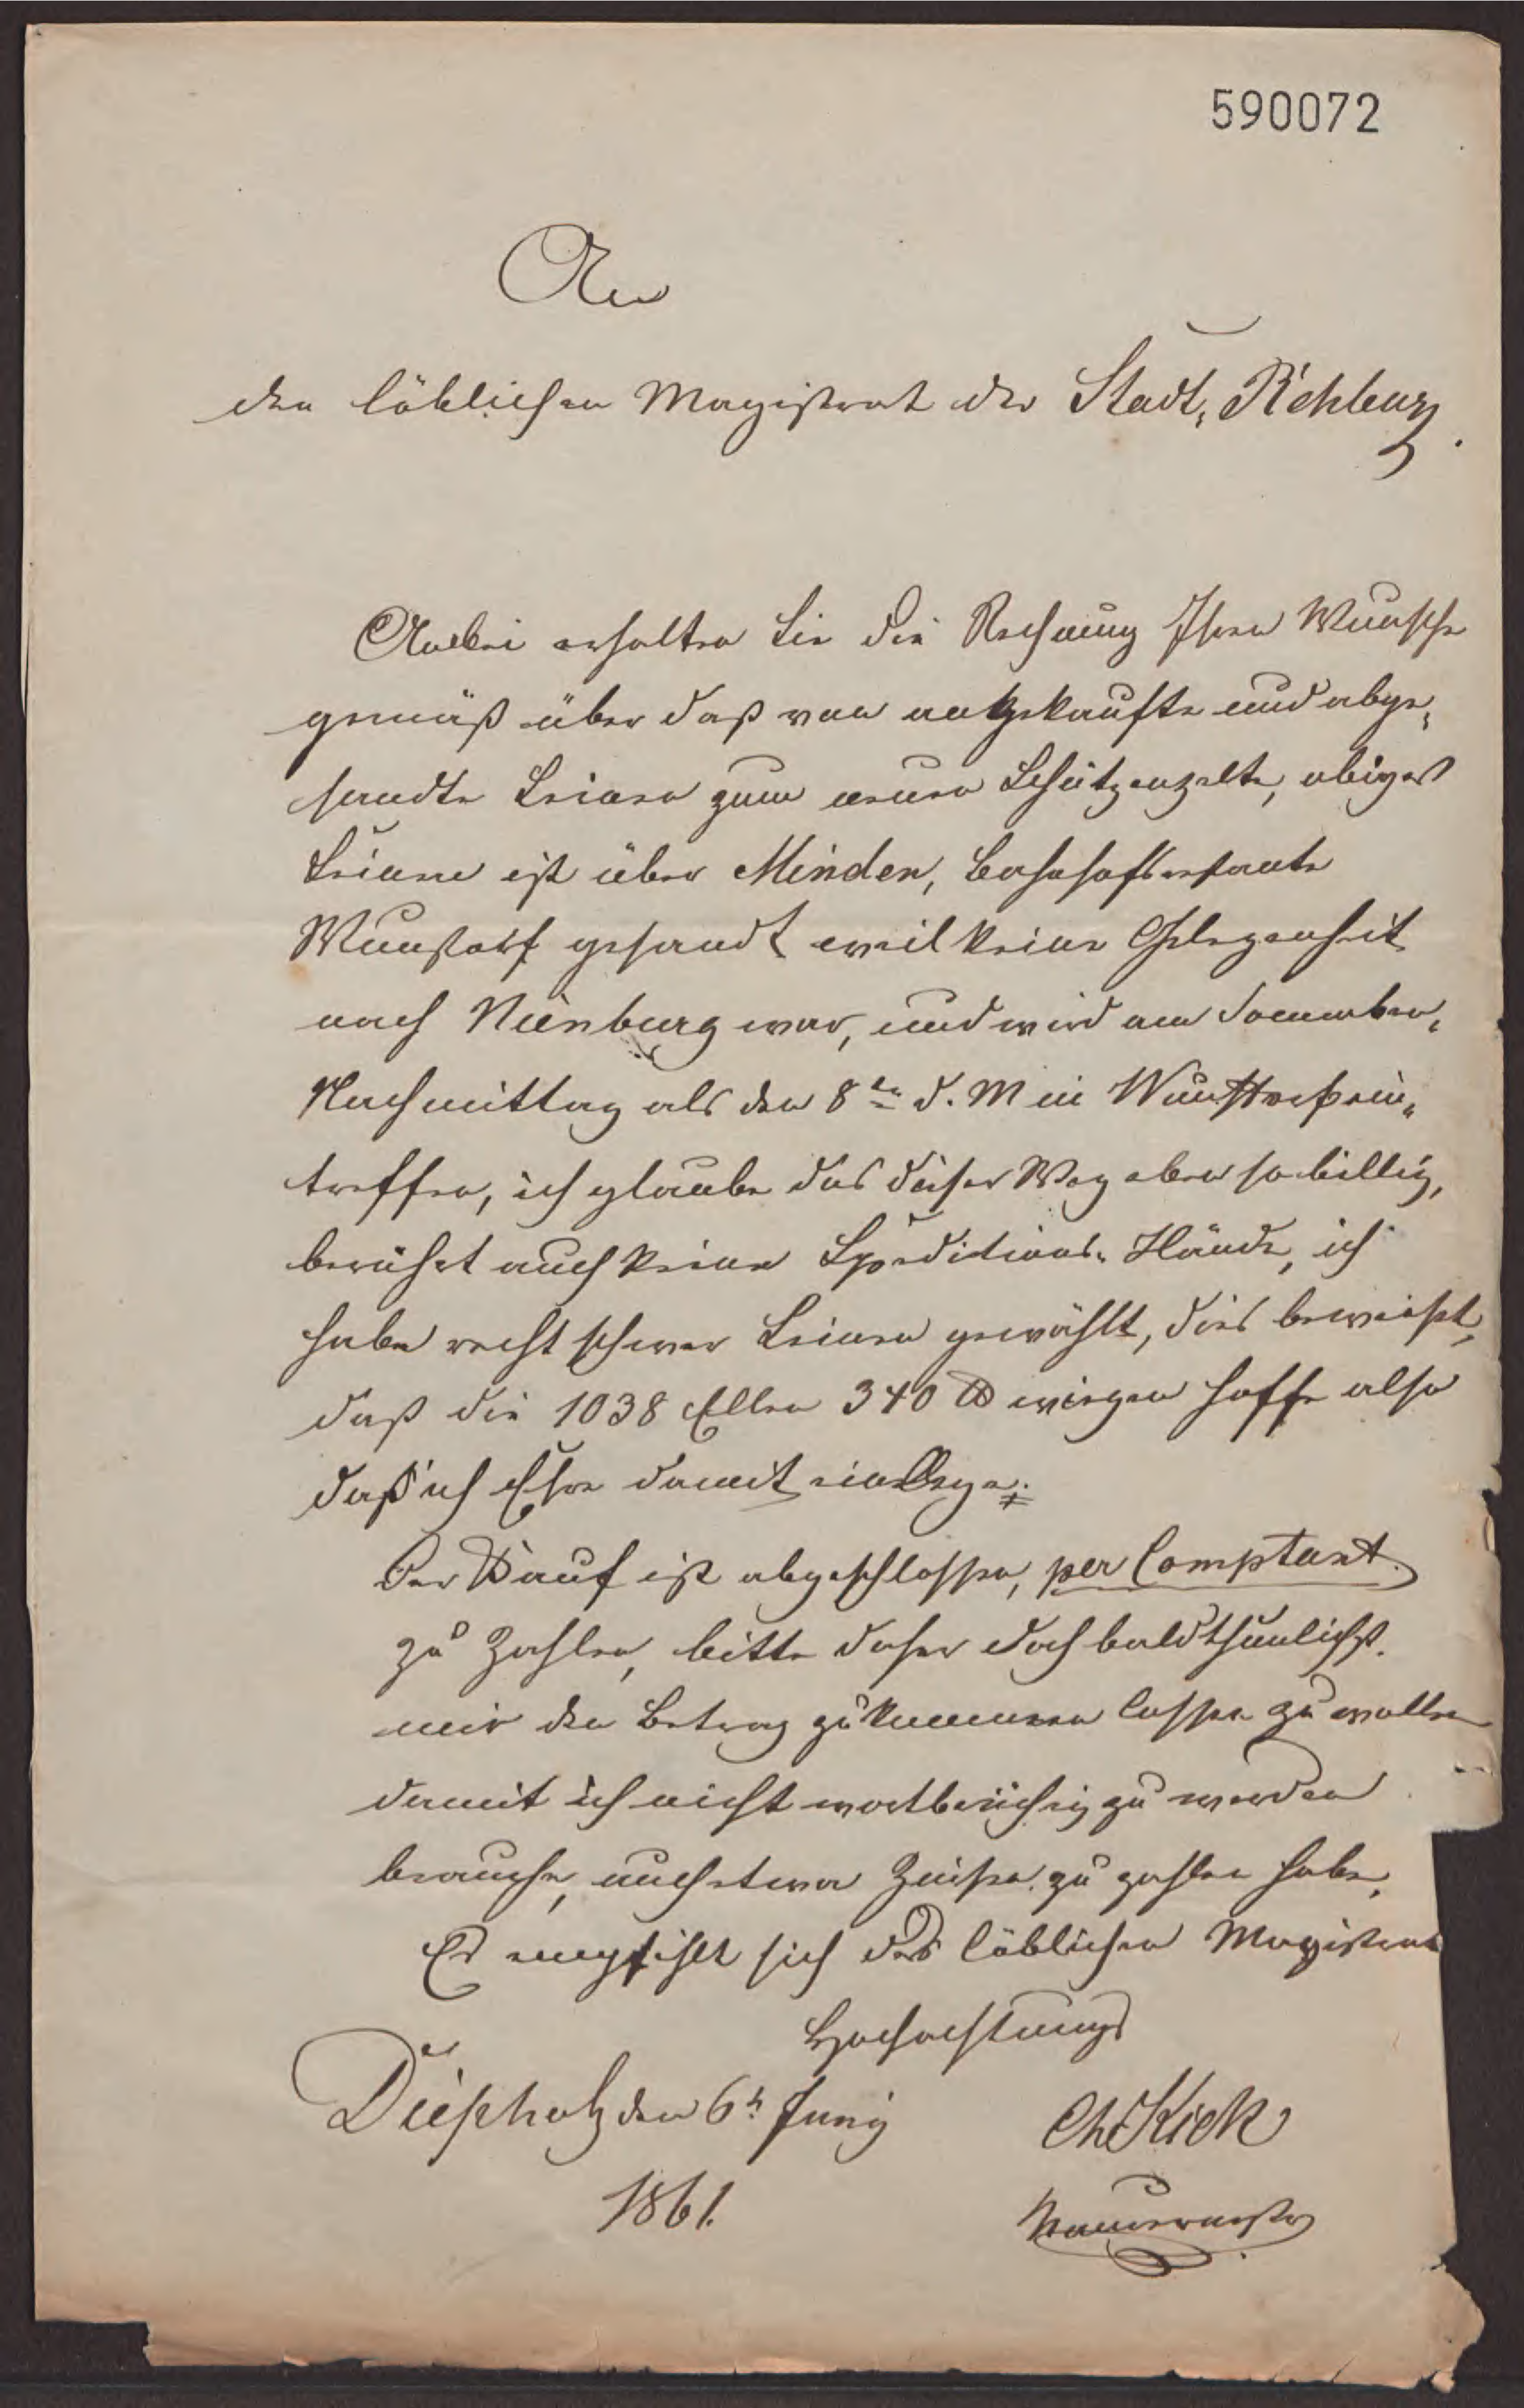 590072
An
den löblichen Magistrat der Stadt, Rehburg.
Anbei erhalten Sie die Rechnung Ihren Wunsche
gemäß über daß von angekaufte und abge„
sandte Leinen zum neuen Schützenzelte, obiges
Leinen ist über Minden, Bahnhof
Wunstorf gesandt weil keine Gelegenheit
nach Nienburg war, und wird am Sonnaben„
Nachmittag als den 8ten d. M in Wunstorf ein„
treffen, ich glaube das dieser Weg eben so billig,
berührt auch keine Speditions„ Hände, ich
habe recht schwer Leinen gewählt, dies beweißt,
daß die 1038 Ellen 340 ℔ wiegen hoffe also
daß ich Ehre damit einlege.
Der Kauf ist abgeschlossen, per Comptant
zu Zahlen, bitte daher doch baldthunlichst.
mir den Betrag zukommen lassen zu wollen
damit ich nicht wortbrüchig zu werden
brauche, auch etwa Zinsen zu zahlen habe,
Es empfihlt sich des löblichen Magistrat
Hochachtungs
Diepholz den 6t. Juny
Ch Kick
1861.
Maurermstr